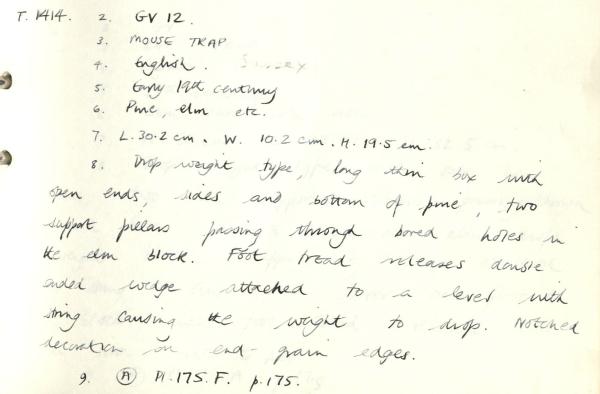 T. 1414. 2. GV 12.
3. MOUSE TRAP
4. English. Sussex
5. Early 19th century
6. Pine, elm etc.
7. L. 30.2 cm. W. 10.2 cm. H. 19.5 cm.
8. Drop weight type, long thin box with
open ends, sides and bottom of pine, two
support pillars passing through bored holes in
the elm block. Foot tread releases double
ended wedge attached to a lever with
string causing the weight to drop. Notched
decoration on end-grain edges.
9. A Pl. 175. F. p. 175.